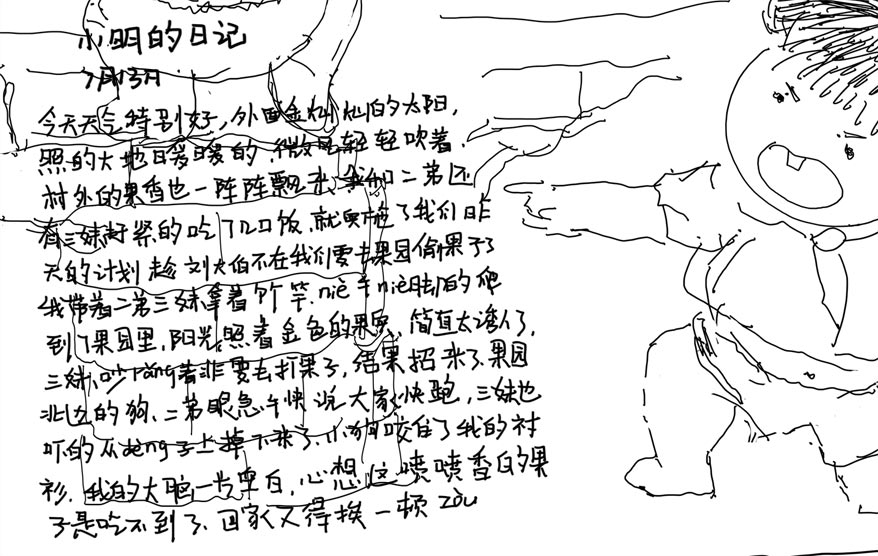 小明的日记
7月13日
今天天气特别好,外面金灿灿的太阳,
照的大地日暖日暖的.微风轻轻吹着.
村外的果香也一阵阵飘来.我和二弟还
有三妹赶紧的吃了几口饭,就实施了我们昨
天的计划趁刘大伯不在我们要去果园偷果子了
我带着二弟三妹拿着竹竿.niè手niè脚的爬
到了果园里,阳光照着金色的果实、简直太诱人了,
三妹吵rǎng着非要去打果子,结果招来了果园
北边的狗、二弟眼急手快说大家快跑,三妹也
吓的从deng子上掉下来了.小狗咬住了我的衬
衫.我的大脑一片空白,心想这喷喷香的果
子是吃不到了.回家又得挨一顿zòu